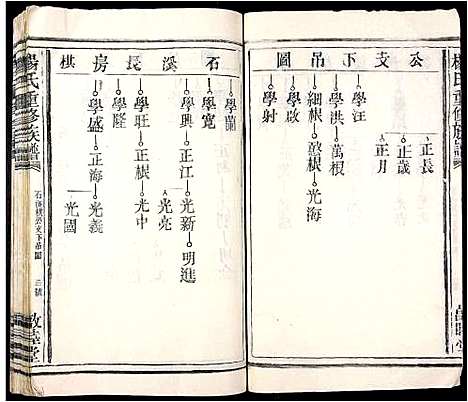 楊氏重修族譜
公支下吊圖
正長
正歲
正月
學汪
學洪 萬根
細根 鼓根 光海
學啟
學射
石溪長房棋
學韻
學寬
學興 正江 光新 明進
光亮
學旺 正根 光中
學隆
學盛 正海 光義
光國
楊氏重修族譜
敦睦堂